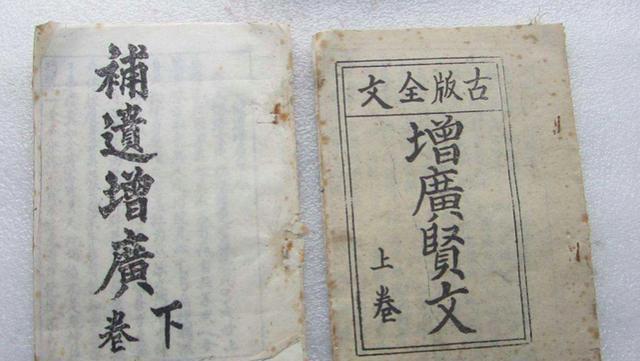 古版全文
增廣賢文
上卷
補遺增廣
下卷